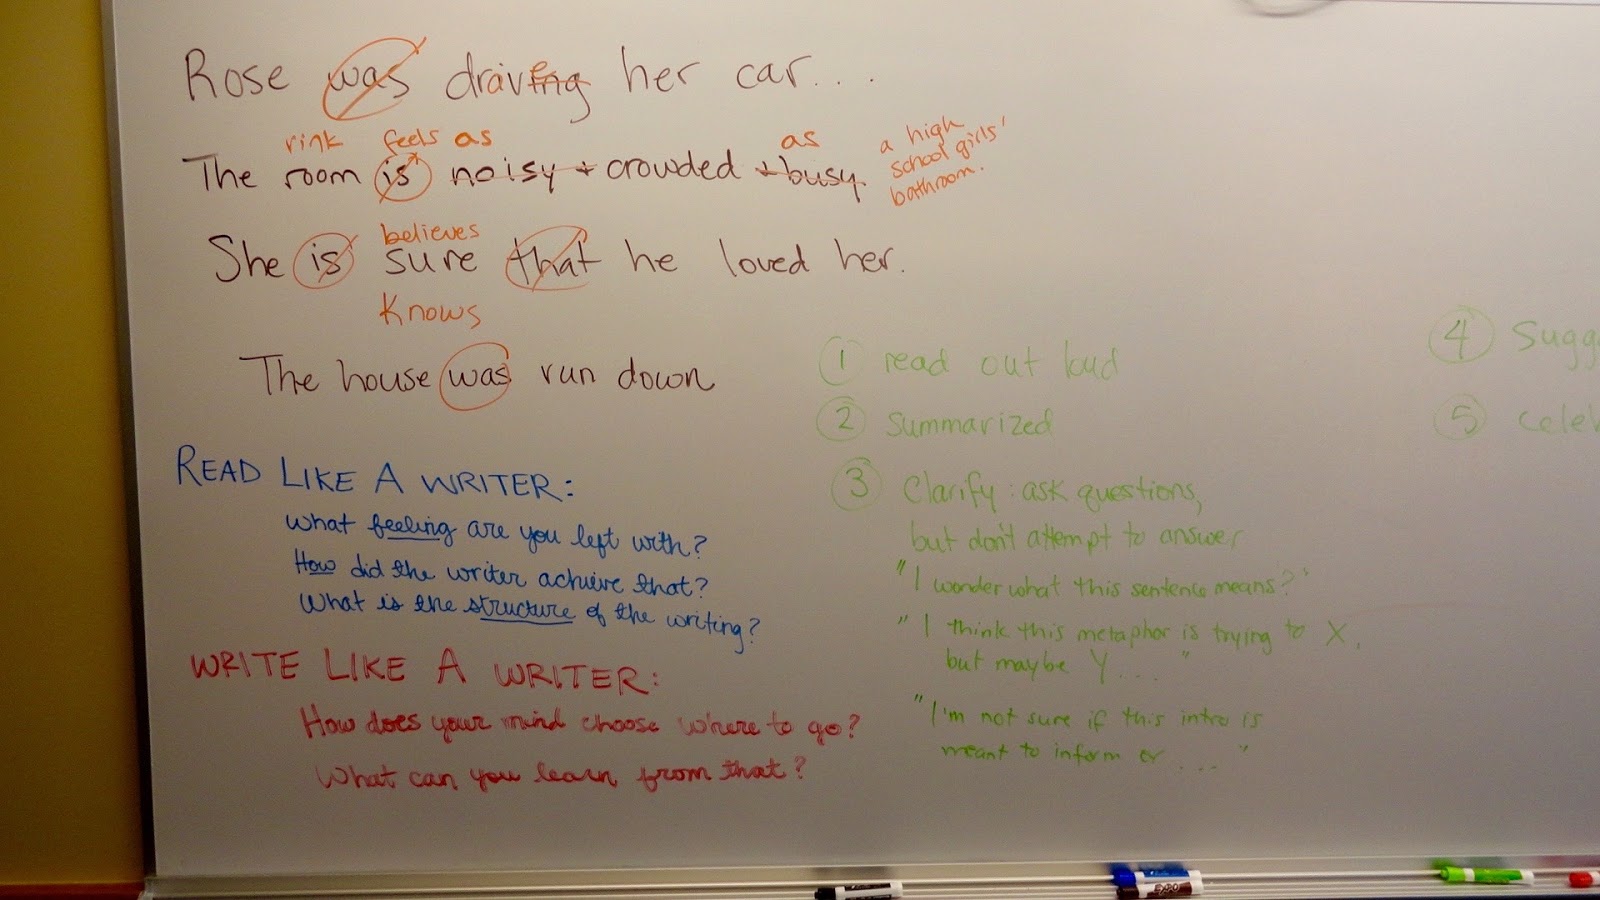 Rose was driving her car...
rink feels as as a high
school girls'
bathroom.
The room is noisy + crowded + busy.
believes
She is sure that he loved her.
Knows
The house was run down
READ LIKE A WRITER:
What feeling are you left with?
How did the writer achieve that?
What is the structure of the writing?
WRITE LIKE A WRITER:
How does your mind choose where to go?
What can you learn from that?
1 read out loud
2 summarized
3 Clarify: ask questions,
but don't attempt to answer
"I wonder what this sentence means?"
"I think this metaphor is trying to X,
but maybe Y...."
"I'm not sure if this intro is
meant to inform or ...."
4 Sugg
5 Celeb
EXPO